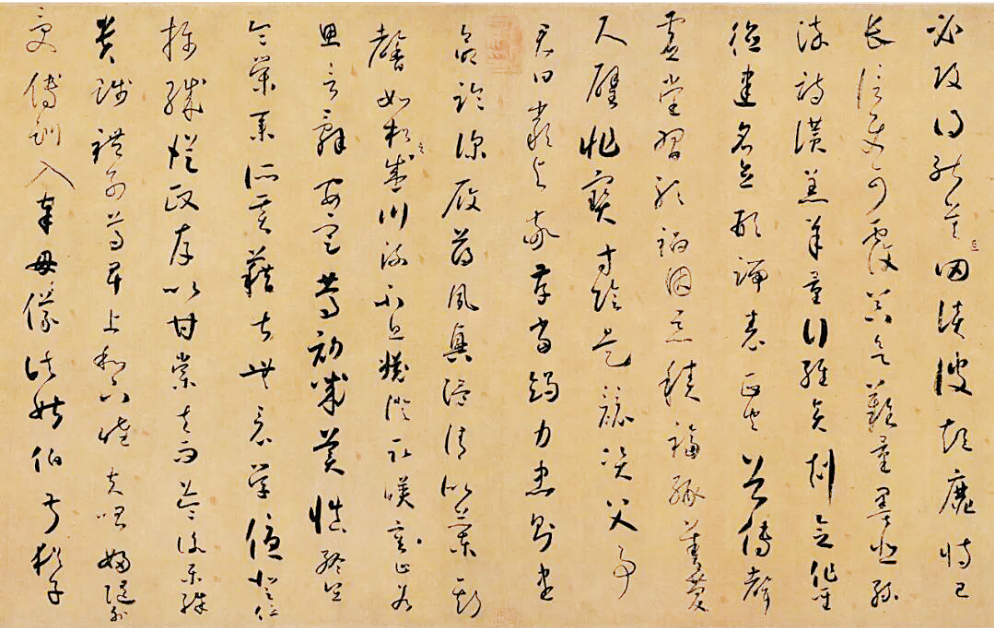 必改得能莫忘罔談彼短靡恃己
長信使可覆器欲難量墨悲絲
染詩讚羔羊景行維賢剋念作聖
德建名立形端表正空谷傳聲
虛堂習聽禍因惡積福緣善慶
尺璧非寶寸陰是競資父事
君曰嚴與敬孝當竭力忠則盡
命臨深履薄夙興溫凊似蘭斯
馨如松之盛川流不息淵澄取映容止若
思言辭安定篤初誠美慎終宜
令榮業所基籍甚無竟學優登仕
攝職從政存以甘棠去而益詠樂殊
貴賤禮別尊卑上和下睦夫唱婦隨外
受傅訓入奉母儀諸姑伯叔猶子